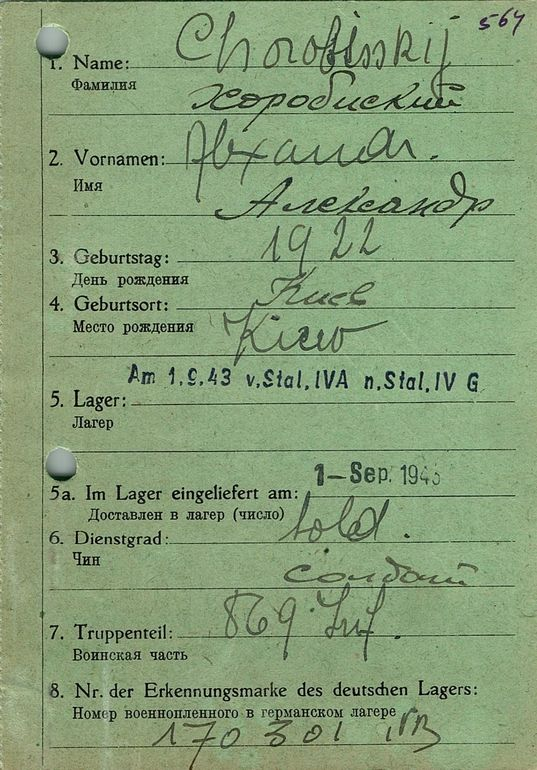 564
1. Name: Chorobisskij
Фамилия Хоробиский
2. Vornamen: Alexandr.
Имя
Александр
3. Geburtstag: 1922
День рождения
Киев
4. Geburtsort:
Место рождения Kiew
Am 1.9.43 v. Stal. IVA n. Stal. IV G
5. Lager:
Лагерь
1-Sep. 1943
5a. Im Lager eingeliefert am:
Доставлен в лагерь (число)
6. Dienstgrad: Sold.
Чин
Солдат
7. Truppenteil: 869. Inf.
Воинская часть
8. Nr. der Erkennungsmarke des deutschen Lagers:
Номер военнопленного в германском лагере
170 301 IVB